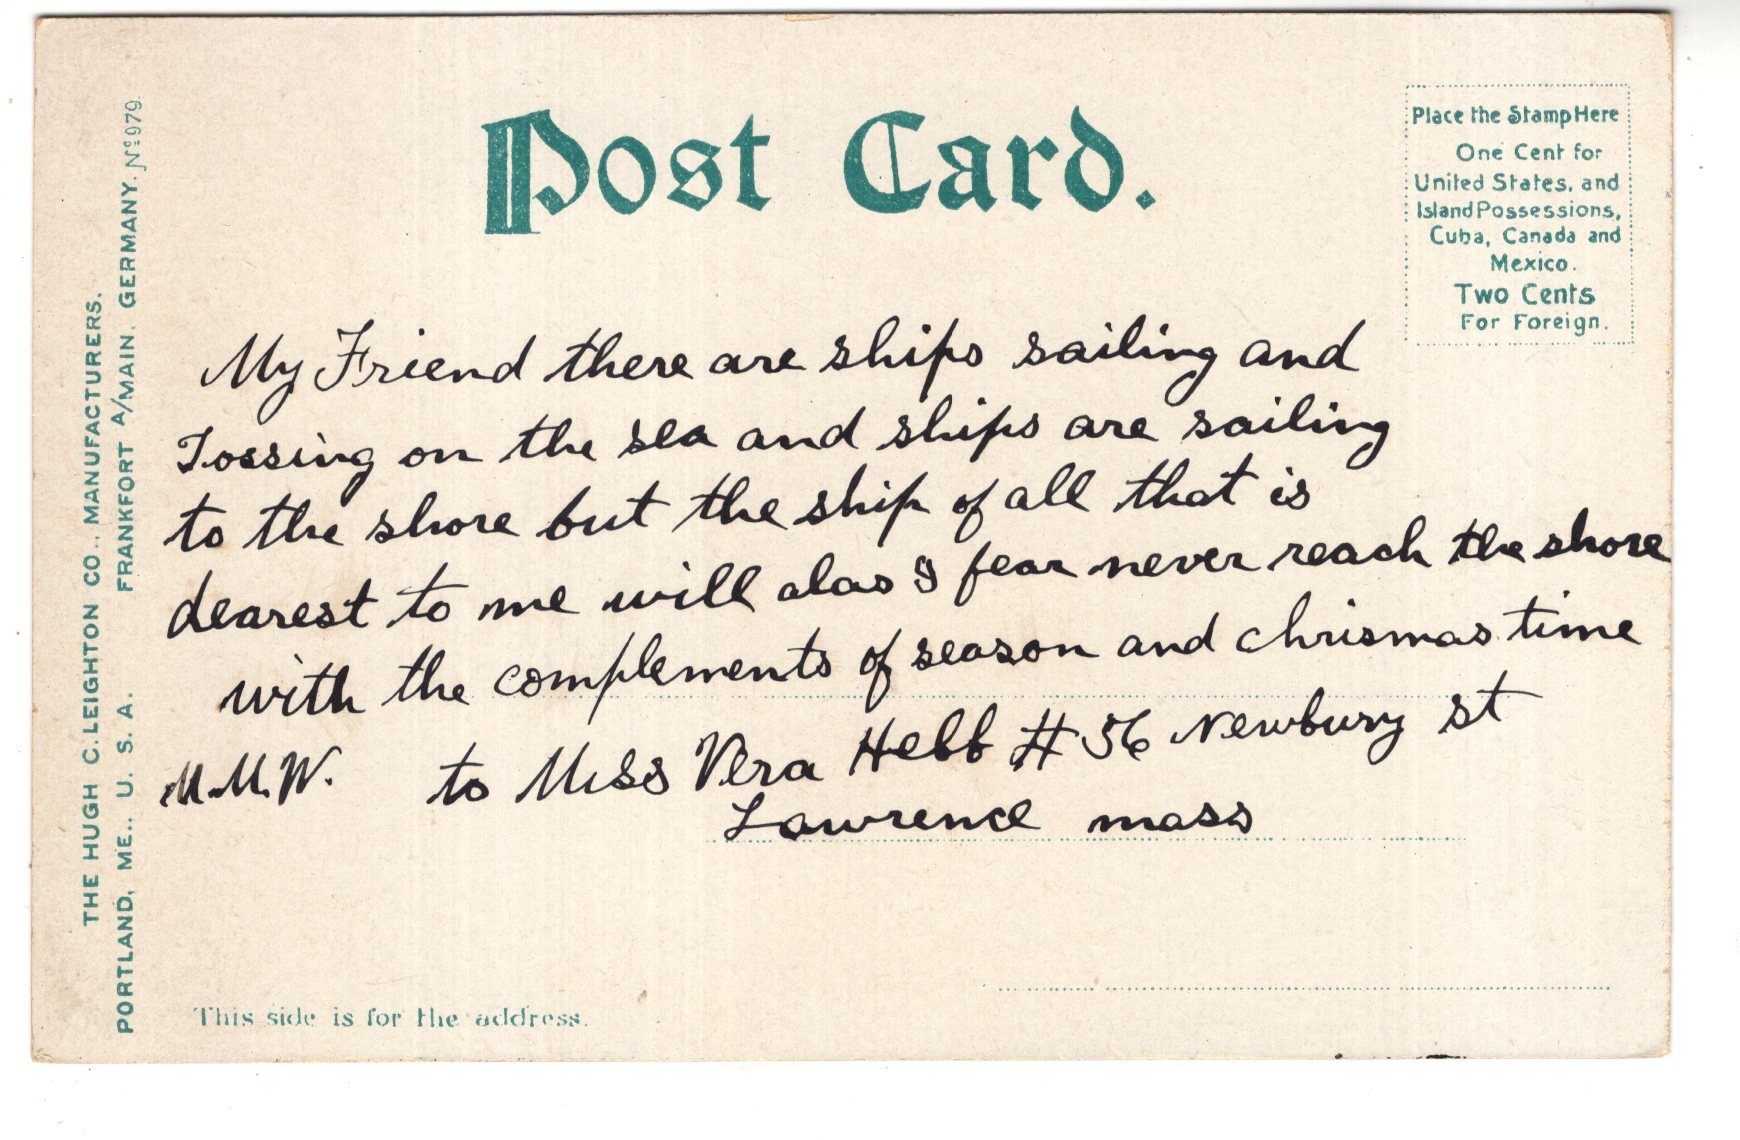 Post Card.
Place the Stamp Here
One Cent for
United States, and
Island Possessions,
Cuba, Canada and
Mexico.
Two Cents
For Foreign.
My Friend there are ships sailing and
Tossing on the sea and ships are sailing
to the shore but the ship of all that is
dearest to me will alas I fear never reach the shore
with the complements of season and chrismas time
M.M.W. to Miss Vera Hebb # 56 Newbury st
Lawrence mass
This side is for the address.
THE HUGH C. LEIGHTON CO., MANUFACTURERS.
PORTLAND, ME., U. S. A. FRANKFORT A/MAIN. GERMANY. No 979.